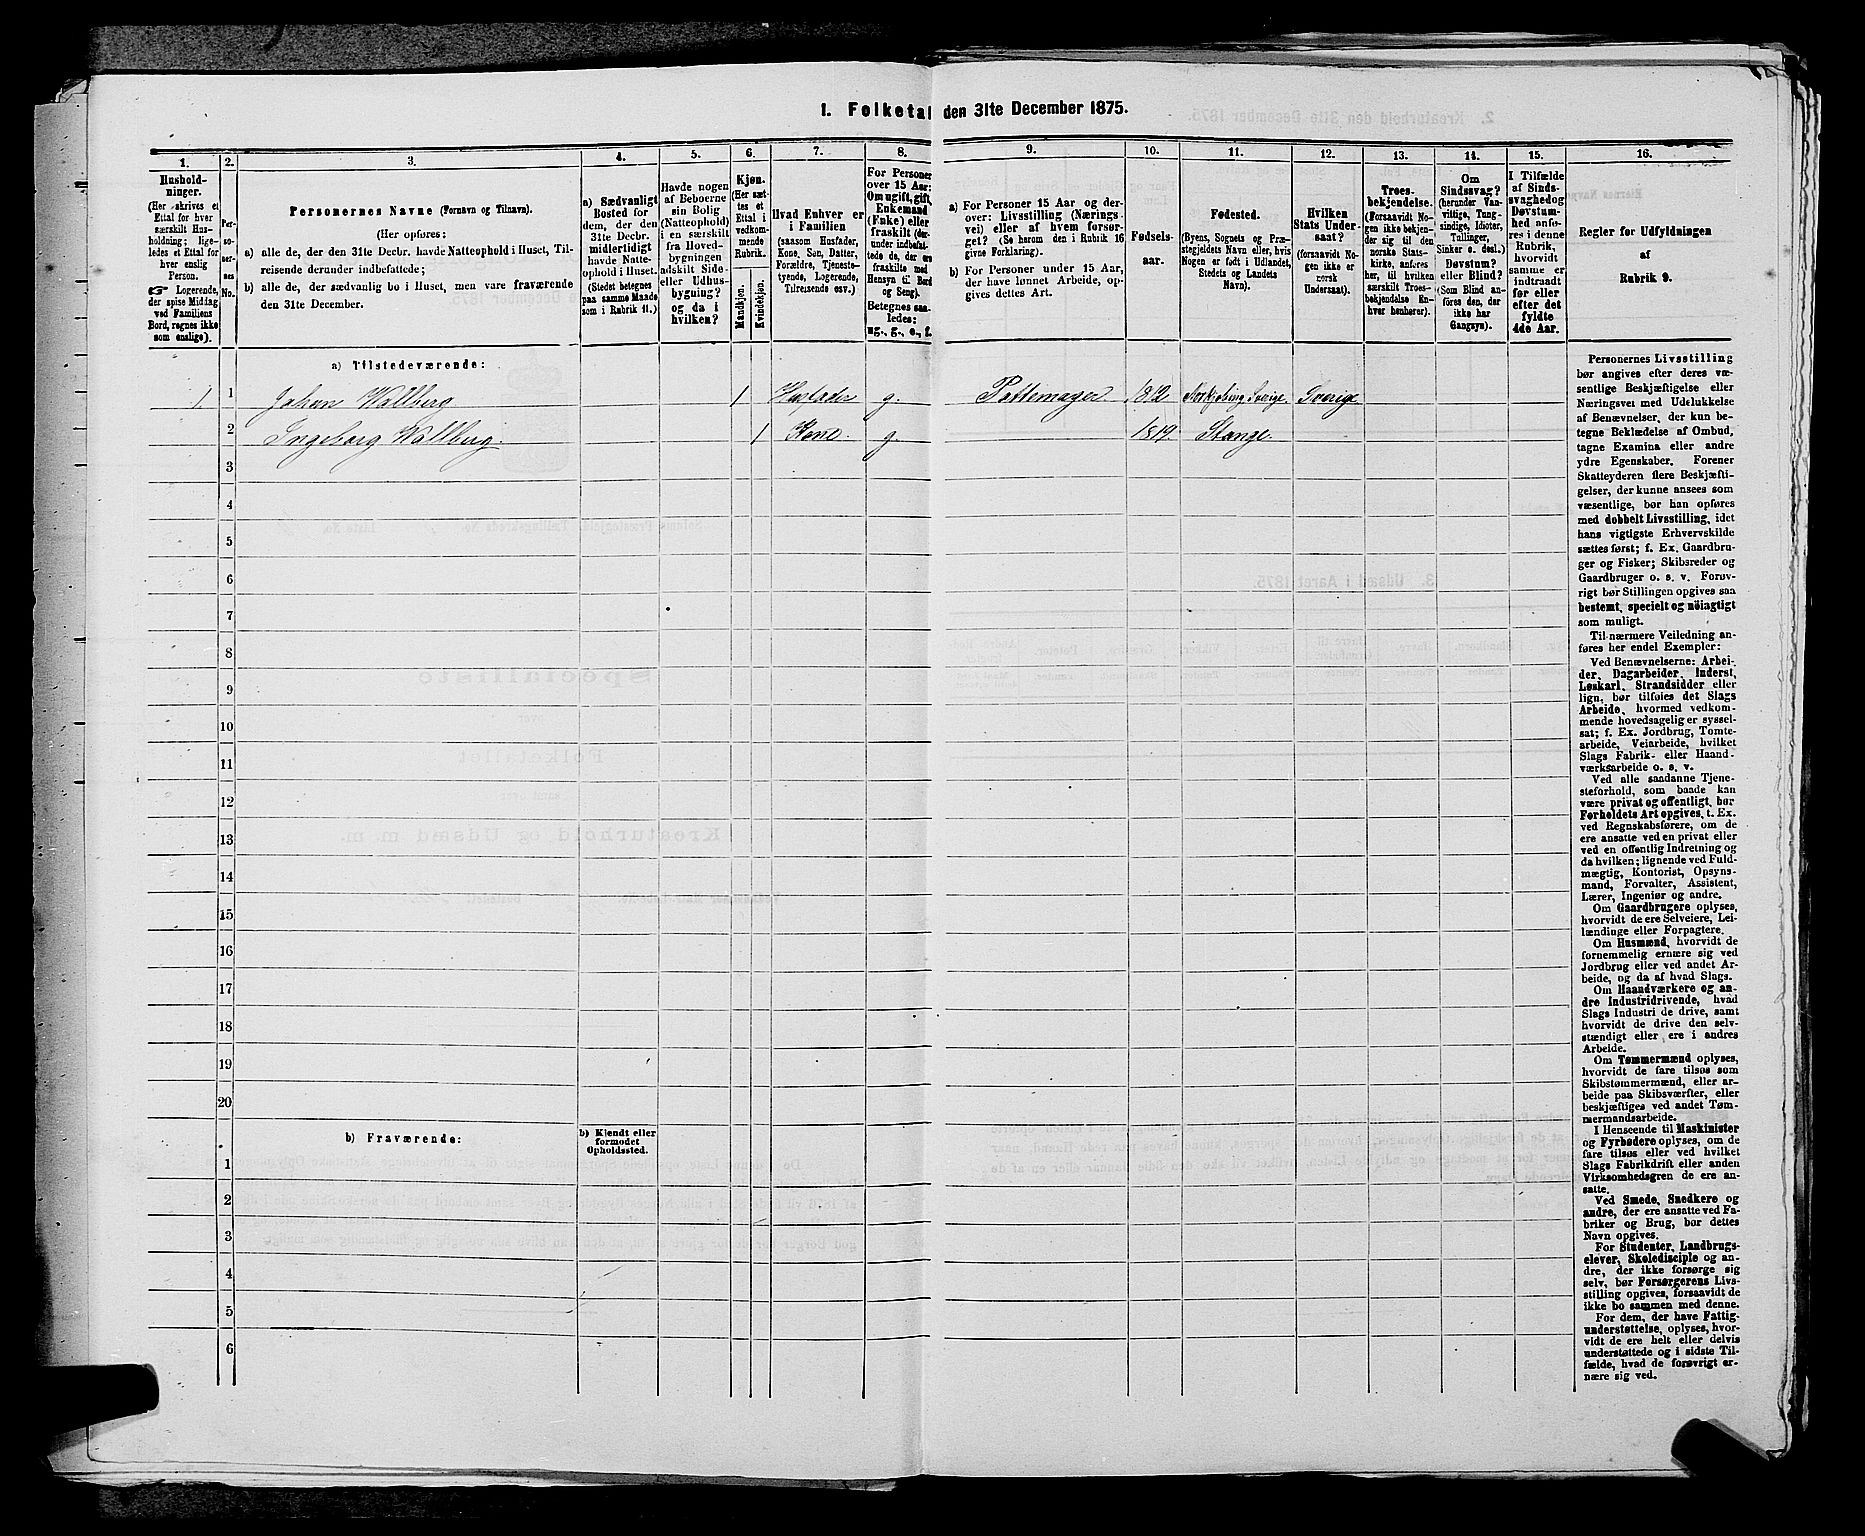 1. Folketal den 31te December 1875.
1.
Hushold-
ninger.
(Her skrives et
Ettal for hver
særskilt Hus-
holdning; lige-
ledes et Ettal for
hver enslig
Person.
☞ Logerende,
der spise Middag
ved Familiens
Bord, regnes ikke
som enslige).
2.
Per-
so-
ner-
nes
No.
3.
Personernes Navne (Fornavn og Tilnavn).
(Her opføres:
a) alle de, der den 31te Decbr. havde Natteophold i Huset, Til-
reisende derunder indbefattede;
b) alle de, der sædvanlig bo i Huset, men vare fraværende
den 31te December.
4.
a) Sædvanligt
Bosted for
dem, der den
31te Decbr.
midlertidigt
havde Natte-
ophold i Huset.
(Stedet betegnes
paa samme Maade
som i Rubrik 11.)
5.
Havde nogen
af Beboerne
sin Bolig
(Natteophold)
i en særskilt
fra Hoved-
bygningen
adskilt Side-
eller Udhus-
bygning?
og da i
hvilken?
6.
Kjøn.
(Her sæt-
tes et
Ettal i
vedkom-
mende
Rubrik.
Mandkjøn.
Kvindekjøn.
7.
Hvad Enhver er
i Familien
(saasom Husfader,
Kone, Søn, Datter,
Forældre, Tjeneste-
tyende, Logerende,
Tilreisende osv.)
8.
For Personer
over 15 Aar:
Om ugift, gift,
Enkemand
(Enke) eller
fraskilt (der-
under indbefat-
tede de, der ere
fraskilte med
Hensyn til Bord
og Seng).
Betegnes saa-
ledes:
ug., g., e., f.
9.
a) For Personer 15 Aar og der-
over: Livsstilling (Nærings-
vei) eller af hvem forsør-
get? (Se herom den i Rubrik 16
givne Forklaring).
b) For Personer under 15 Aar,
der have lønnet Arbeide, op-
gives dettes Art.
10.
Fødsels-
aar.
11.
Fødested.
(Byens, Sognets og Præ-
stegjeldets Navn eller, hvis
Nogen er født i Udlandet,
Stedets og Landets
Navn).
12.
Hvilken
Stats Under-
saat?
(forsaavidt No-
gen ikke er
norsk
Undersaat).
13.
Troes-
bekjendelse.
(Forsaavidt No-
gen ikke bekjen-
der sig til den
norske Stats-
kirke, anføres
her, til hvilken
særskilt Troes-
bekjendelse En-
hver henhører).
14.
Om
Sindssvag?
(herunder Van-
vittige, Tung-
sindige, Idioter,
Tullinger,
Sinker o. desl.)
Døvstum?
eller Blind?
(Som Blind an-
føres den, der
ikke har
Gangsyn).
15.
I Tilfælde
af Sinds-
svaghed og
Døvstum-
hed anfø-
res i denne
Rubrik,
hvorvidt
samme er
indtraadt
før eller
efter det
fyldte
4de Aar.
16.
Regler for Udfyldningen
af
Rubrik 9.
a) Tilstedeværende:
1. 1 Johan Wallberg 1 Husfader g. Pottemager 1812 Norkjøbing Sverige. Sverige
2 Ingeborg Wallberg. 1 Kone. g 1819. Stange.
3
4
5
6
7
8
9
10
11
12
13
14
15
16
17
18
19
20
b) Fraværende:
b) Kjendt eller
formodet
Opholdssted.
1
2
3
4
5
6
Personernes Livsstilling
bør angives efter deres væ-
sentlige Beskjæftigelse eller
Næringsvei med Udelukkelse
af Benævnelser, der kun be-
tegne Beklædelse af Ombud,
tagne Examina eller andre
ydre Egenskaber. Forener
Skatteyderen flere Beskjæfti-
gelser, der kunne ansees som
væsentlige, bør han opføres
med dobbelt Livsstilling, idet
hans vigtigste Erhvervskilde
sættes først; f. Ex. Gaardbru-
ger og Fisker; Skibsreder og
Gaardbruger o. s. v. Forøv-
rigt bør Stillingen opgives saa
bestemt, specielt og nöiagtigt
som muligt.
Til nærmere Veiledning an-
føres her endel Exempler:
Ved Benævnelserne: Arbei-
der, Dagarbeider, Inderst,
Løskarl, Strandsidder eller
lign. bør tilføies det Slags
Arbeide, hvormed vedkom-
mende hovedsagelig er syssel-
sat; f. Ex. Jordbrug, Tomte-
arbeide, Veiarbeide, hvilket
Slags Fabrik- eller Haand-
værksarbeide o. s. v.
Ved alle saadanne Tjene-
steforhold, som baade kan
være privat og offentligt, bør
Forholdets Art opgives, t. Ex.
ved Regnskabsførere, om de
ere ansatte ved en privat eller
ved en offentlig Indretning og
da hvilken; lignende ved Fuld-
mægtig, Kontorist, Opsyns-
mand, Forvalter, Assistent,
Lærer, Ingeniør og andre.
Om Gaardbrugere oplyses,
hvorvidt de ere Selveiere, Lei-
lændinge eller Forpagtere.
Om Husmænd, hvorvidt de
fornemmelig ernære sig ved
Jordbrug eller ved andet Ar-
beide, og da af hvad Slags.
Om Haandværkere og an-
dre Industridrivende, hvad
Slags Industri de drive, samt
hvorvidt de drive den selv-
stændigt eller ere i andres
Arbeide.
Om Tømmermænd oplyses,
hvorvidt de fare tilsøs som
Skibstømmermænd, eller ar-
beide paa Skibsværfter, eller
beskjæftiges ved andet Tøm-
mermandsarbeide.
I Henseende til Maskinister
og Fyrbødere oplyses, om de
fare tilsøs eller ved hvilket
Slags Fabrikdrift eller anden
Virksomhedsgren de ere an-
satte.
Ved Smede, Snedkere og
andre, der ere ansatte ved Fa-
briker og Brug, bør dettes
Navn opgives.
For Studenter, Landbrugs-
elever, Skoledisciple og an-
dre, der ikke forsørge sig
selv, bør Forsørgerens Livs-
stilling opgives, forsaavidt de
ikke bo sammen med denne.
For dem, der have Fattig-
understøttelse, oplyses, hvor-
vidt de ere helt eller delvis
understøttede og i sidste Til-
fælde, hvad de forøvrigt er-
nære sig ved.